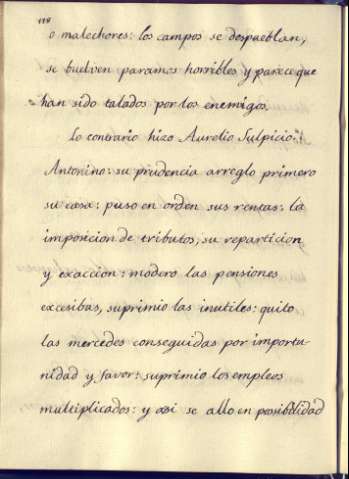 118
o malechores: los campos se despueblan,
se buelven paramos horribles y pareceque
han sido talados por los enemigos.
Lo contrario hizo Aurelio Sulpicio
Antonino: su prudencia arreglo primero
su casa: puso en orden sus rentas: la
imposicion de tributos, su reparticion
y exaccion: modero las pensiones
excesibas, suprimio las inutiles: quito
las mercedes conseguidas por importu-
nidad y favor: suprimio los empleos
multiplicados: y asi se allo en posibilidad